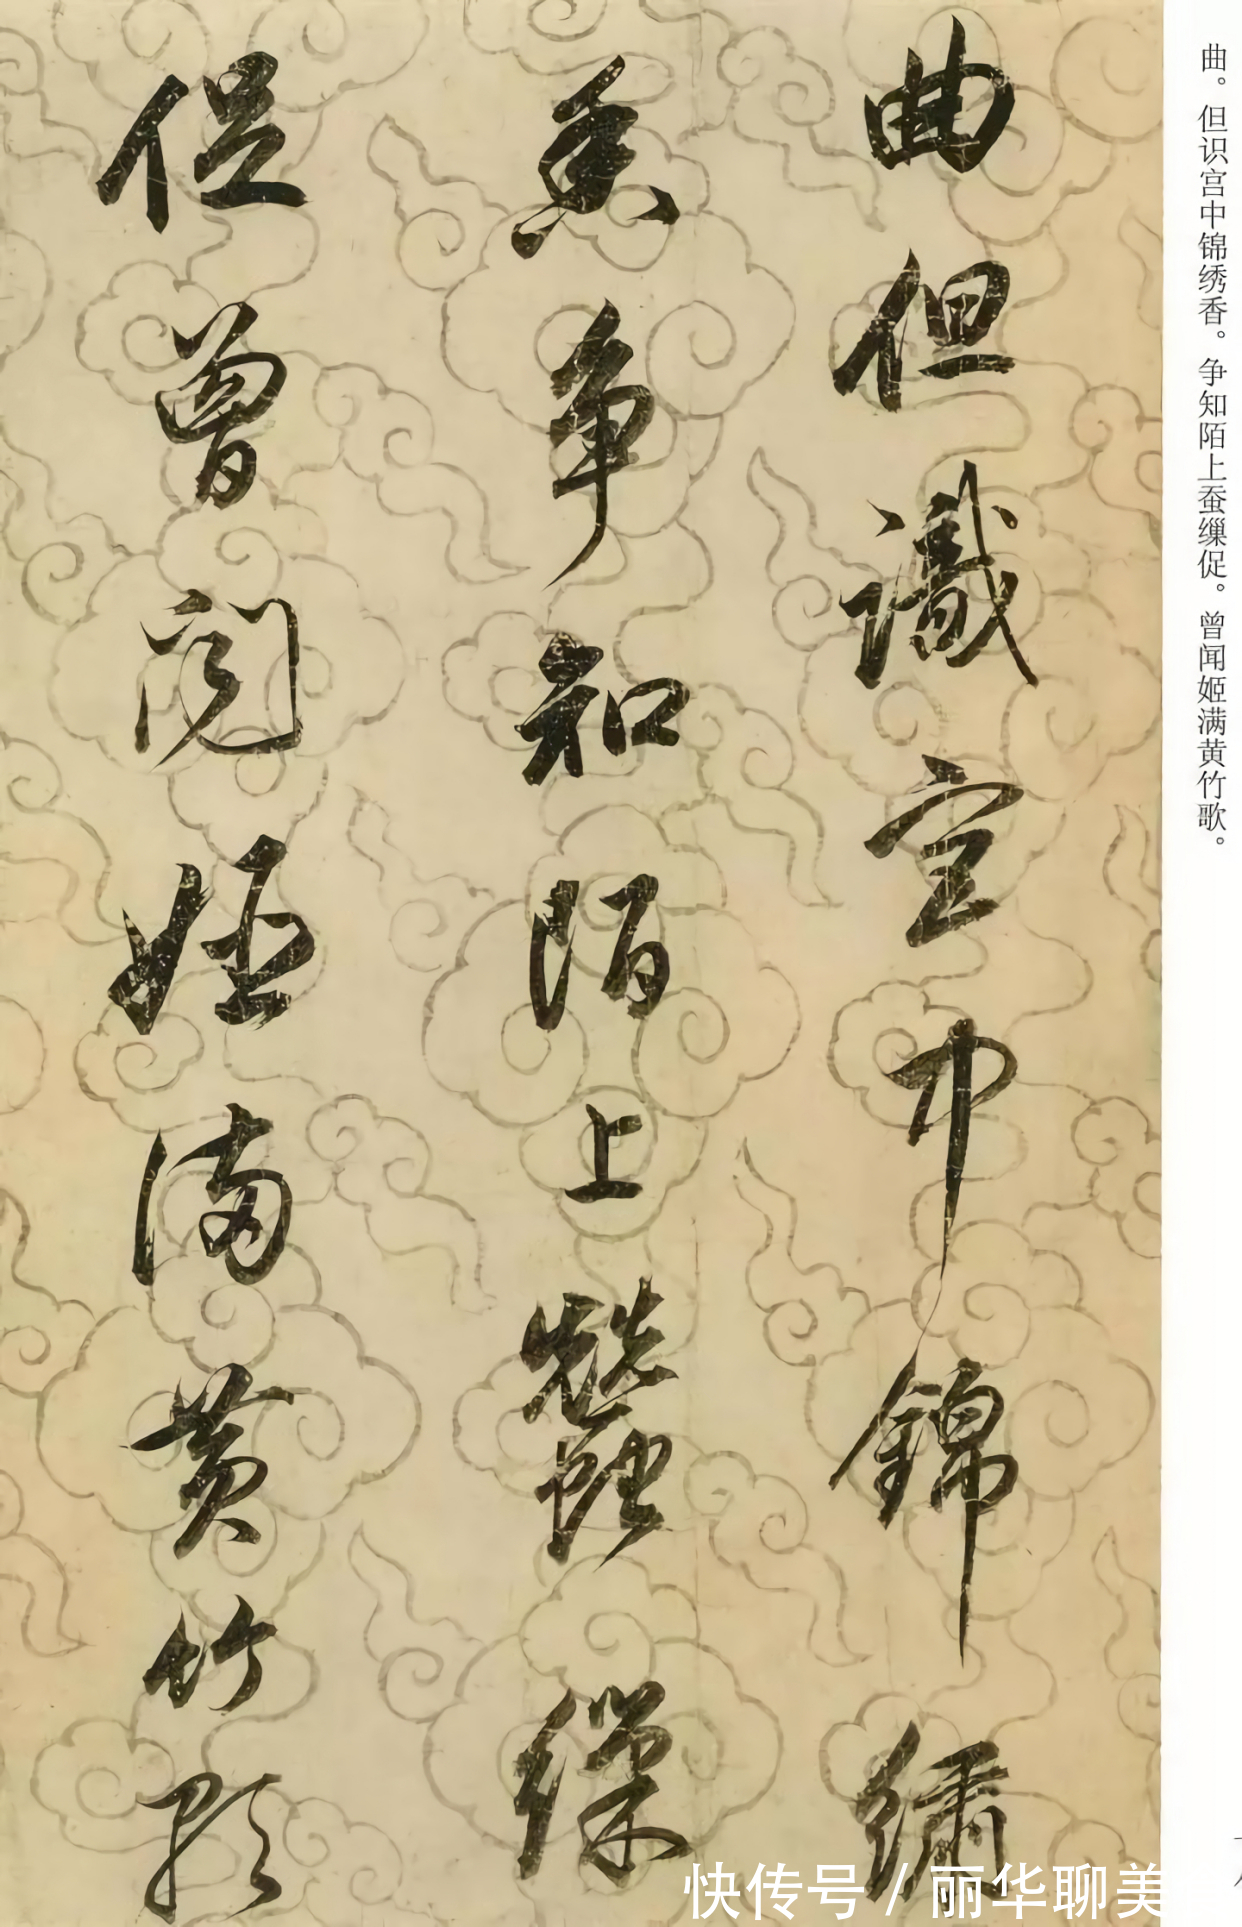 曲但識宮中錦繡
香爭知陌上蠶繅
促曾聞姬滿黃竹歌
曲。但识宫中锦绣香。争知陌上蚕缫促。曾闻姬满黄竹歌。
快传号 / 丽华聊美